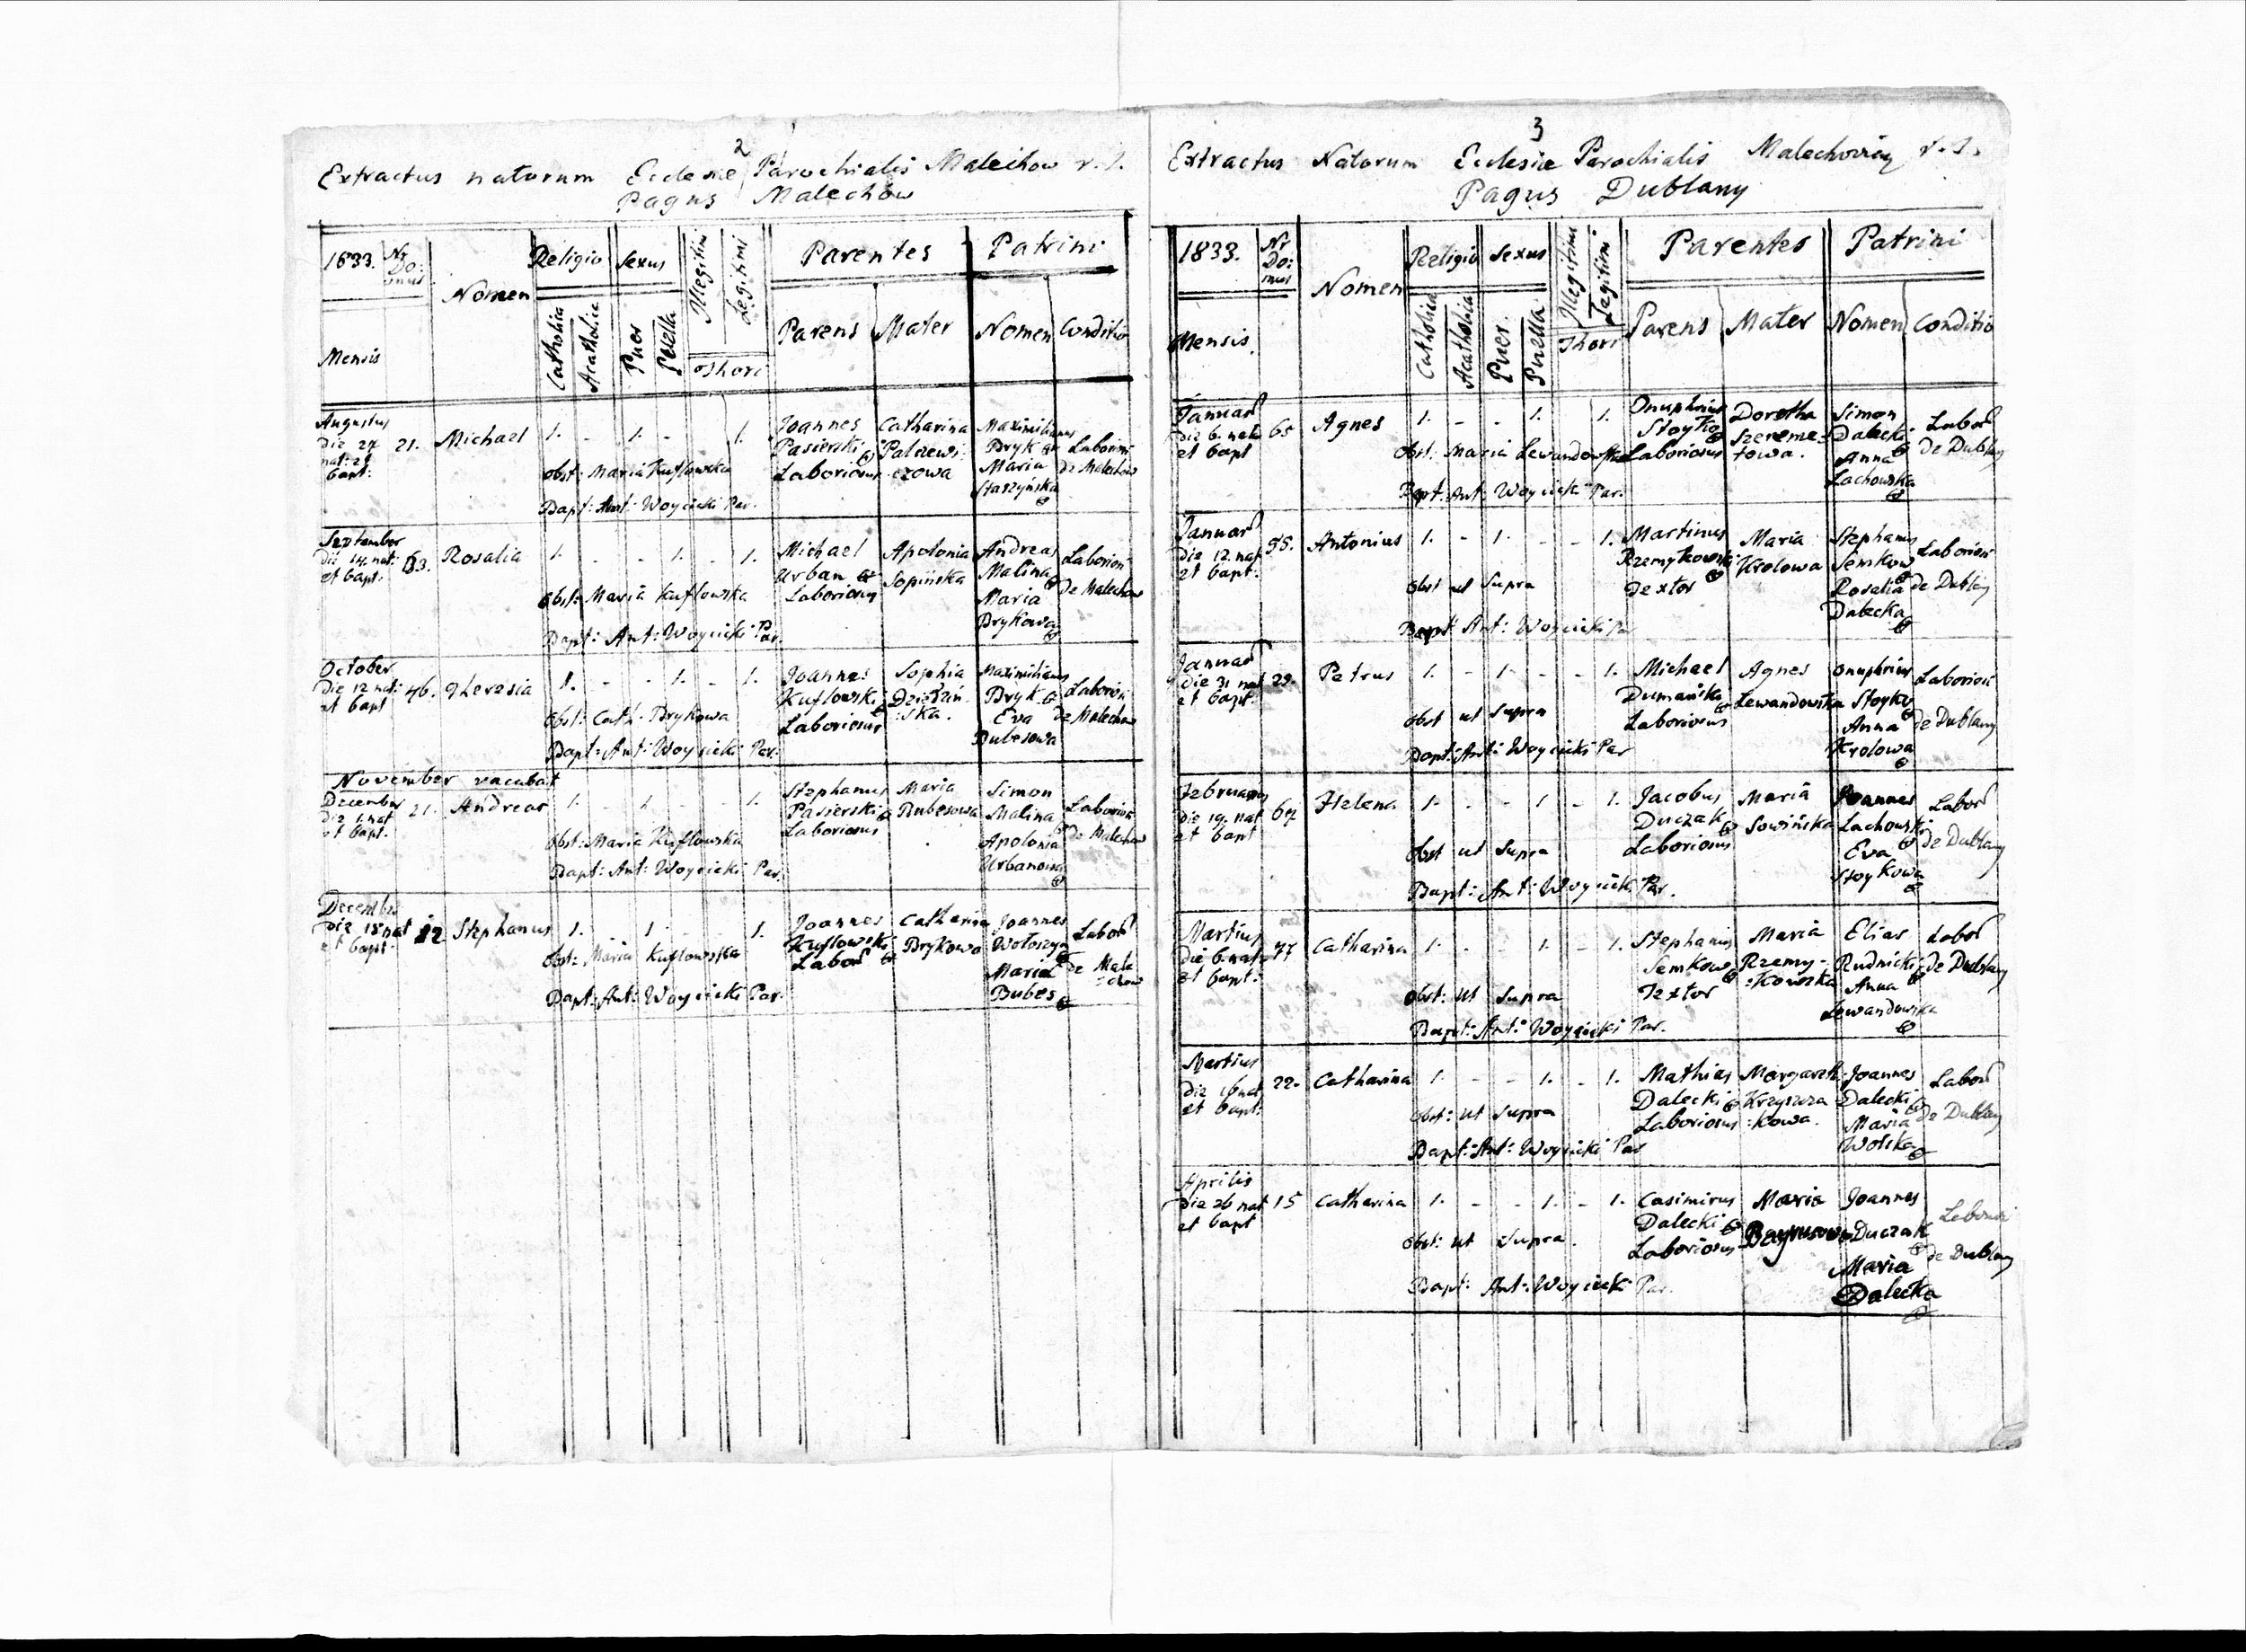 2
Extractus natorum Ecclesiae Parochialis Malechow r. l.
Pagus Malechow
1833. Nr Domus Nomen Religio Sexus Illegitimi Legitimi Parentes Patrini
Mensis Catholica Acatholica Puer Puella Thori Parens Mater Nomen Conditio
Augustus 21. Michael 1. - 1. - 1. Joannes Catharina Maximilianus
die 27 Pasierski Palczewi- Bryk Laboriosi
nat: 29 Obst: Maria Kuflowska Laboriosus czowa Maria de Malechow
bapt: Staszyńska
Bapt: Ant: Woycicki Par.
September Rosalia 1. - - 1. - 1. Michael Apolonia Andreas Laboriosi
die 14. nat: 53. Urban Sopińska Malina
et bapt: Obst: Maria Kuflowska Laboriosus Maria de Malechow
Bapt: Ant: Woycicki Par. Brykowa
October 1. - - 1. - 1. Joannes Sophia Maximilianus
die 12 nat: 46. Theresia Kuflowski Dziedziń- Bryk Laboriosi
et bapt Obst: Cath: Brykowa Laboriosus :ska. Eva de Malechow
Bapt: Ant: Woycicki Par. Bubesowa
November vacabat
December 21. Andreas 1. - 1 - - 1. Stephanus Maria Simon
die 1. nat Pasierski Bubesowa Malina Laboriosi
et bapt. Obst: Maria Kuflowska Laboriosus Apolonia de Malechow
Bapt: Ant: Woycicki Par. Urbanowa
December
die 18 nat 12 Stephanus 1. 1 - - 1. Joannes Catharina Joannes
et bapt. Obst: Maria Kuflowska Kuflowski Brykowa Wołoszyn Labor
Labor Maria de Male
Bapt: Ant: Woycicki Par. Bubes :chow
3
Extractus Natorum Ecclesiae Parochialis Malechoviens r. l.
Pagus Dublany
1833. Nr Domus Nomen Religio Sexus Illegitimi Legitimi Parentes Patrini
Mensis. Catholica Acatholica Puer Puella Thori Parens Mater Nomen Conditio
Januar 65 Agnes 1. - - 1. 1. Onuphrius Dorotha Simon Labor
die 6. nat Stoyko Szereme- Dalecki
et bapt Obst: Maria Lewandowska Laboriosus towa. Anna de Dublany
Bapt: Ant: Woycicki Par. Lachowska
Januar 1. - 1. - - 1. Martinus Maria Stephanus
die 12. nat 55. Antonius Rzemykowski Krolowa Semkow Laboriosi
et bapt: Obst ut Supra Textor Rosalia de Dublany
Bapt: Ant: Woycicki Par Dalecka
Januar 1. - 1 - - 1. Michael Agnes Onuphrius Laboriosi
die 31 nat 29. Petrus Dumański Lewandowska Stoyko
et bapt. Obst ut Supra Laboriosus Anna de Dublany
Bapt: Ant: Woycicki Par Krolowa
Februarius 1. - - 1 - 1. Jacobus Maria Joannes Labor
die 19. nat 67 Helena Duczak Sowińska Lachowski
et bapt Obst ut Supra Laboriosus Eva de Dublany
Bapt: Ant: Woycicki Par. Stoykowa
Martius 77 Catharina 1. - - 1 - 1. Stephanus Maria Elias Labor
die 6 nat Semkow Rzemy- Rudnicki de Dublany
et bapt: Obst: ut Supra Textor :kowska Anna
Bapt: Ant: Woycicki Par. Lewandowska
Martius 22. Catharina 1. - - 1. - 1. Mathias Margareth Joannes Labor
die 16 nat Dalecki Krzysza Dalecki
et bapt: Obst: ut Supra Laboriosus :kowa. Maria de Dublany
Bapt: Ant: Woycicki Par Wolska
Aprilis
die 26 nat 15 Catharina 1. - - 1. - 1. Casimirus Maria Joannes
et bapt Dalecki Duczak
Obst: ut Supra. Laboriosus Maria de Dublany
Bapt: Ant: Woycicki Par. Dalecka